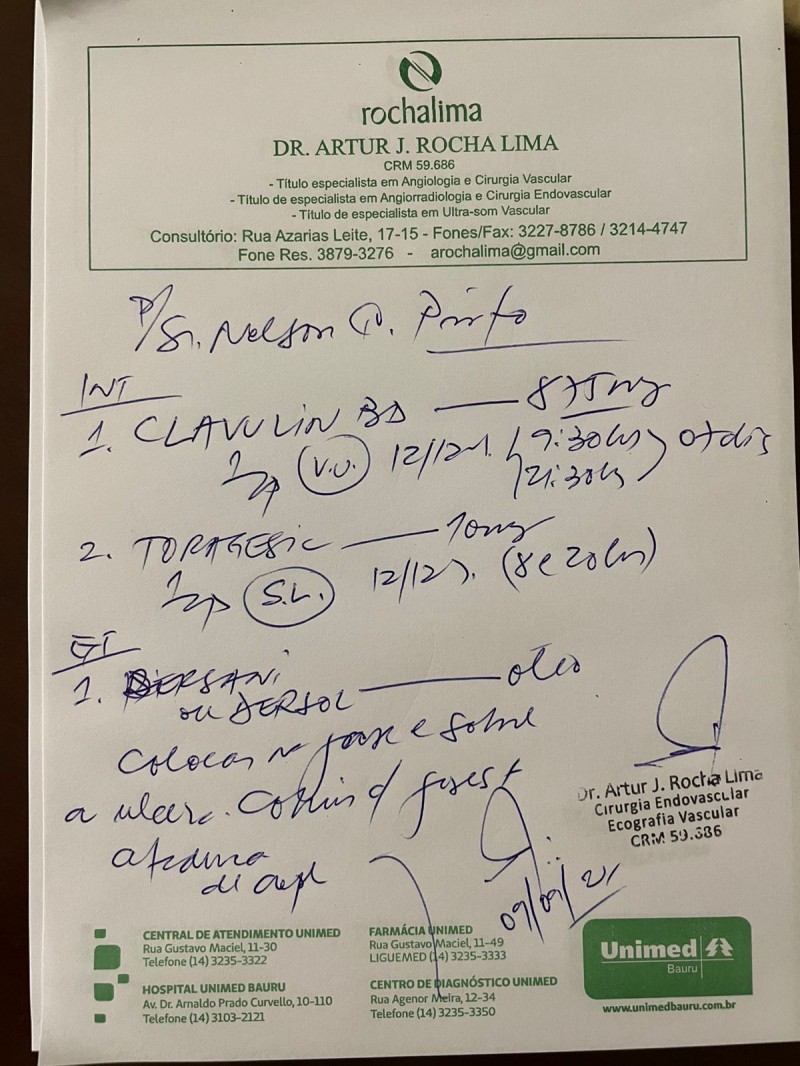 rochalima
DR. ARTUR J. ROCHA LIMA
CRM 59.686
- Título especialista em Angiologia e Cirurgia Vascular
- Título de especialista em Angiorradiologia e Cirurgia Endovascular
- Título de especialista em Ultra-som Vascular
Consultório: Rua Azarias Leite, 17-15 - Fones/Fax: 3227-8786 / 3214-4747
Fone Res. 3879-3276 - arochalima@gmail.com
P/ Sr. Nelson P. Pinto
INT
1. CLAVULIN BD — 875mg
V.O. 12/12h. 9:30hs
21:30hs
2. TORAGESIC — 10mg
S.L. 12/12h. (8 e 20hs)
1. DERSANI — óleo
ou DERSOL
Colocar na gaze e sobre
a úlcera. Cobrir c/ gases +
atadura
de
09/09/21
Dr. Artur J. Rocha Lima
Cirurgia Endovascular
Ecografia Vascular
CRM 59.686
CENTRAL DE ATENDIMENTO UNIMED
Rua Gustavo Maciel, 11-30
Telefone (14) 3235-3322
HOSPITAL UNIMED BAURU
Av. Dr. Arnaldo Prado Curvello, 10-110
Telefone (14) 3103-2121
FARMÁCIA UNIMED
Rua Gustavo Maciel, 11-49
LIGUEMED (14) 3235-3333
CENTRO DE DIAGNÓSTICO UNIMED
Rua Agenor Meira, 12-34
Telefone (14) 3235-3350
Unimed
Bauru
www.unimedbauru.com.br